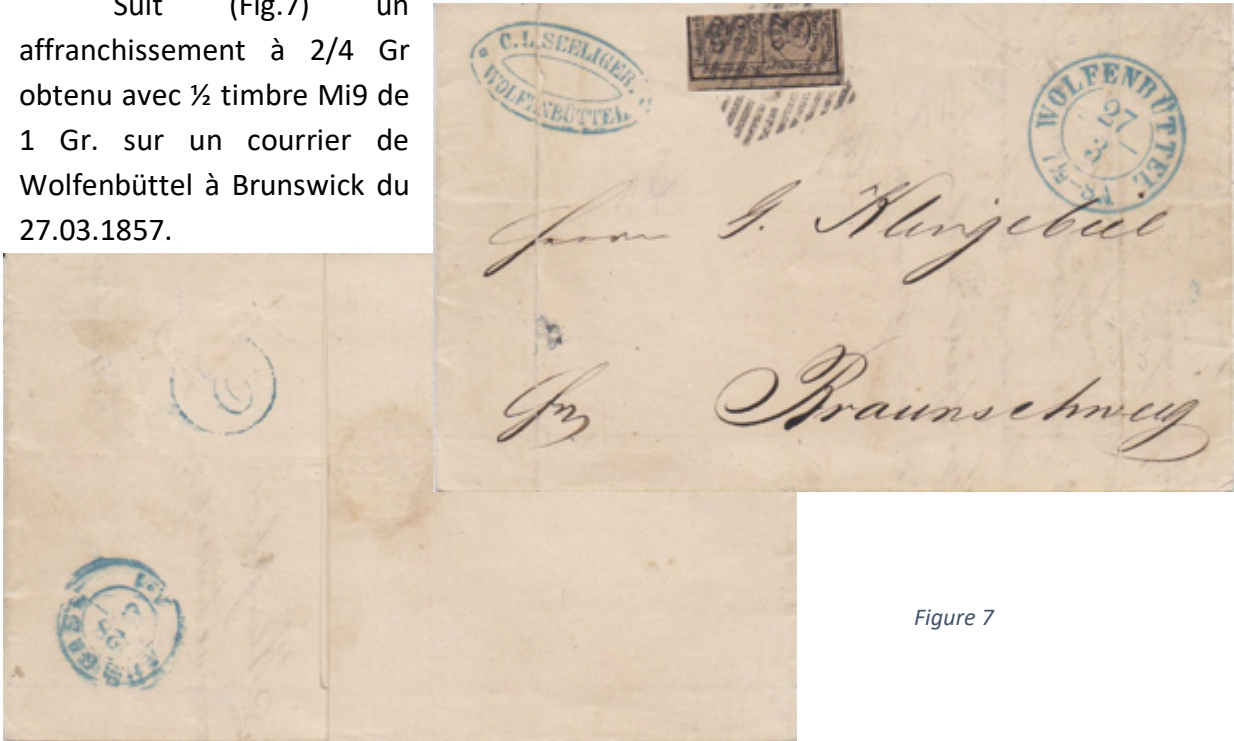 Suit (Fig.7) un
affranchissement à 2/4 Gr
obtenu avec ½ timbre Mi9 de
1 Gr. sur un courrier de
Wolfenbüttel à Brunswick du
27.03.1857.
C. L. SEELIGER.
WOLFENBÜTTEL.
WOLFENBÜTTEL
27
3
G. Klingebiel
Braunschweig
Figure 7